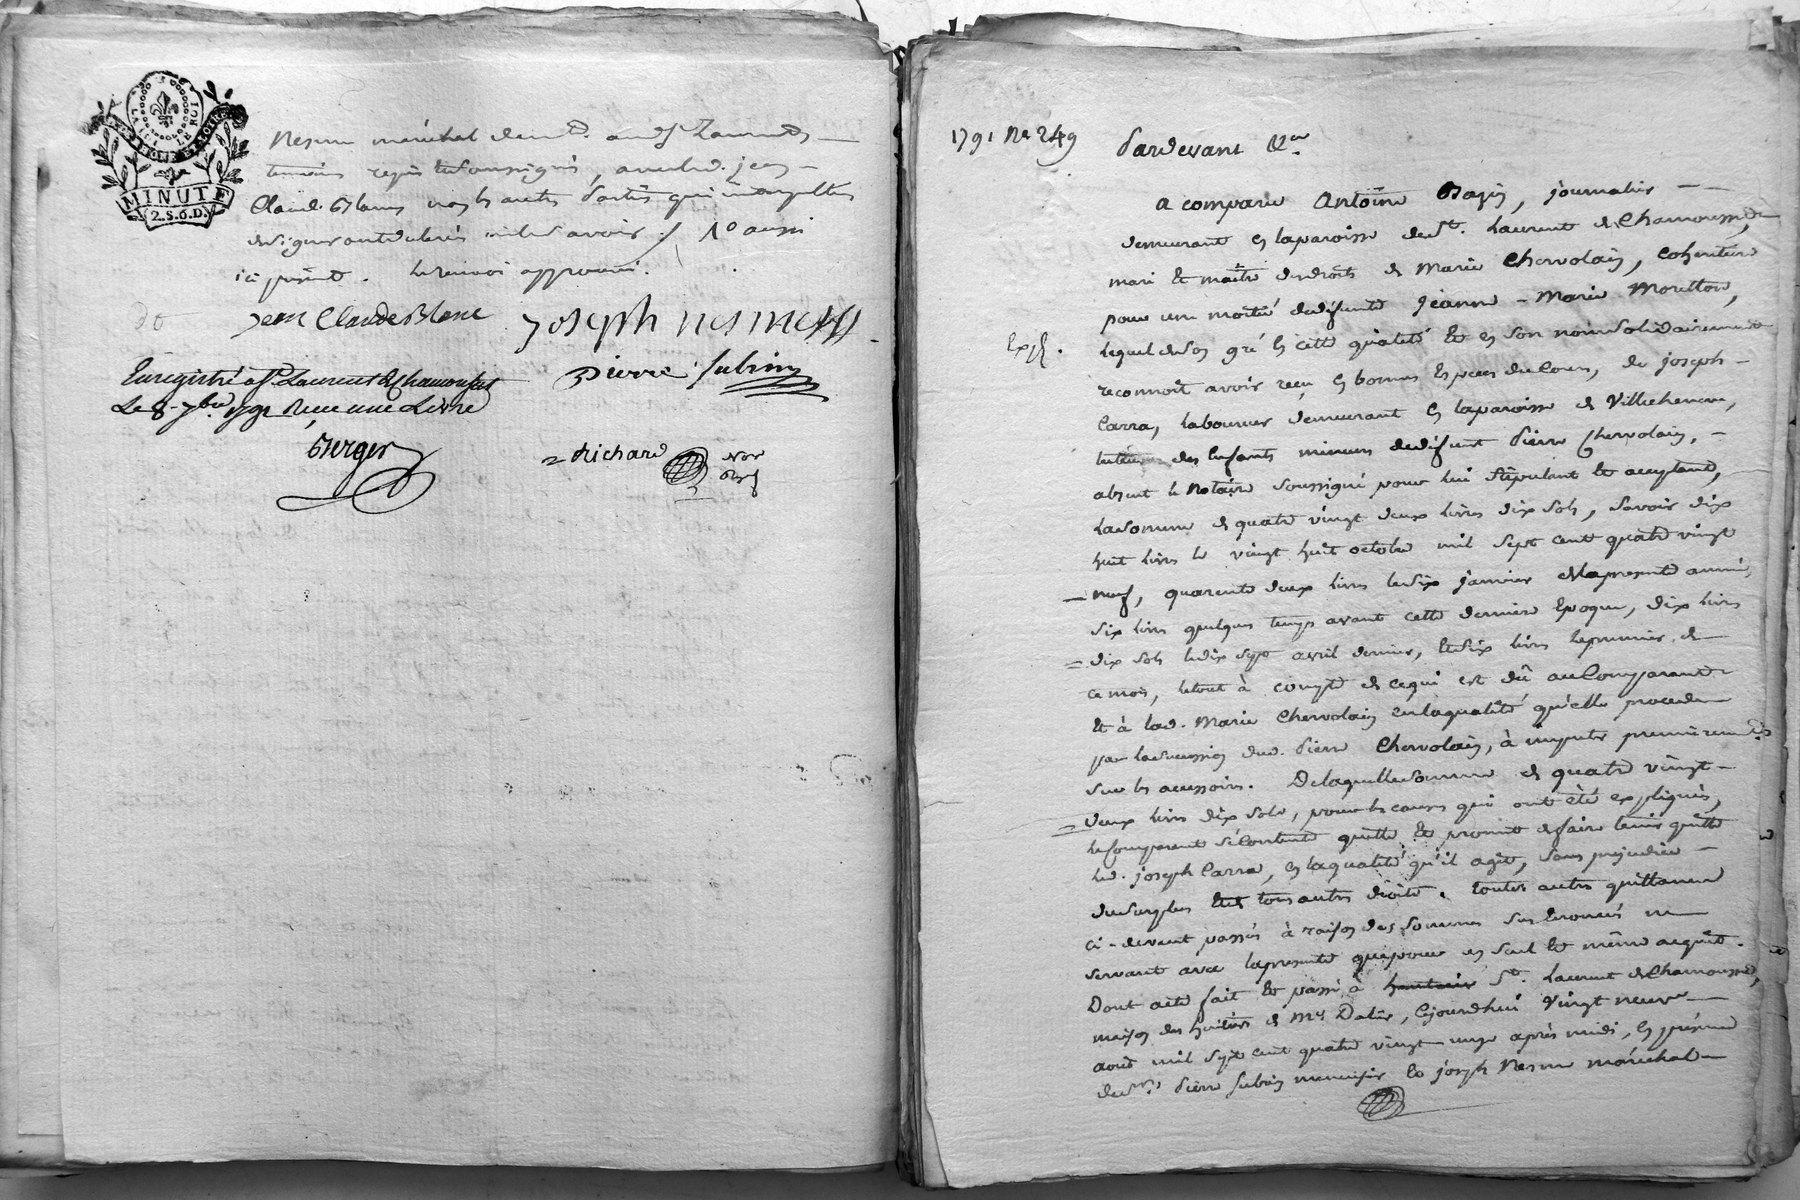 LA LOI LE ROI
RHONE ET LOIRE
MINUTE
2.S.6.D.
Nesme maréchal demt. aud. St Laurent,
temoins requis et soussignés, avec led. jean
Claude Blanc non les autres parties qui interpellées
de signer ont declaré ne le savoir
aussi
ici présent. le renvoi approuvé.
jean Claude Blanc
joseph nesme
Enregistré a St. Laurent de Chamousset
Le 8. 7bre 1791 Reçu une Livre
pierre subrin
Berger
Richard
Nore
1791 No. 249
Pardevant &a.
a comparu Antoine Bazin, journalier
demeurant en la paroisse de St. Laurent de Chamousset,
mari et maitre des droits de Marie Chervolain, cohéritiere
pour une moitié de défunte jeanne-Marie Moretton,
Exp.
lequel de son gré en cette qualité et en son nom solidairement
reconnoit avoir reçu en bonnes Especes du Cours, de joseph
Carra, laboureur demeurant en la paroisse de Villechenève,
tuteur des Enfants mineurs de défunt pierre Chervolain,
absent le Notaire soussigné pour lui stipulant et acceptant,
la somme de quatre vingt deux livres dix sols, savoir dix
huit livres le vingt huit octobre mil sept cent quatre vingt
neuf, quarente deux livres le six janvier de la presente année,
six livres quelques temps avant cette derniere Epoque, dix livres
dix sols le dix sept avril dernier, et six livres le premier de
ce mois, le tout à compte de ce qui est dû au Comparant
et à lad. Marie Chervolain en la qualité qu'elle procede
par la succession dud. pierre Chervolain, à imputer premierement
sur les accessoires. De laquelle somme de quatre vingt
deux livres dix sols, pour les causes qui ont été expliquées,
le Comparant se contente quitte et promet de faire tenir quitte
led. joseph Carra, en la qualité qu'il agit, sans préjudice
du surplus et tous autres droits. toutes autres quittances
ci-devant passées à raison des sommes sus énoncées ne
servant avec la presente que pour un seul et même acquit.
Dont acte fait et passé à St. Laurent de Chamousset,
maison des héritiers de Mr. Dalin, cejourd'hui vingt neuf
aout mil sept cent quatre vingt onze après midi, en présence
de srs. pierre subrin menuisier et joseph Nesme maréchal